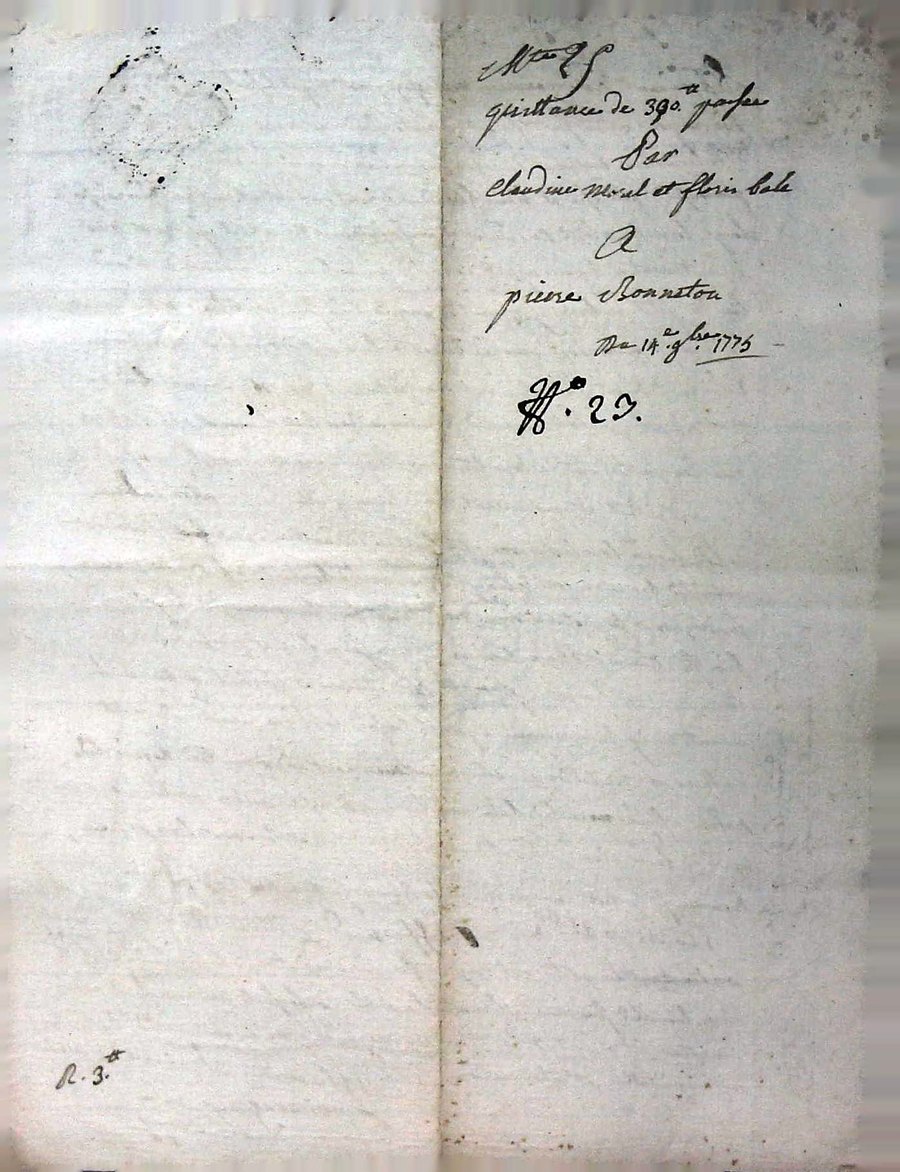 Mte 25
quittance de 390.tt passee
Par
Claudine Morel et floris bale
A
pierre Bonneton
Du 14e. 9bre. 1775
No. 23.
R. 3.tt